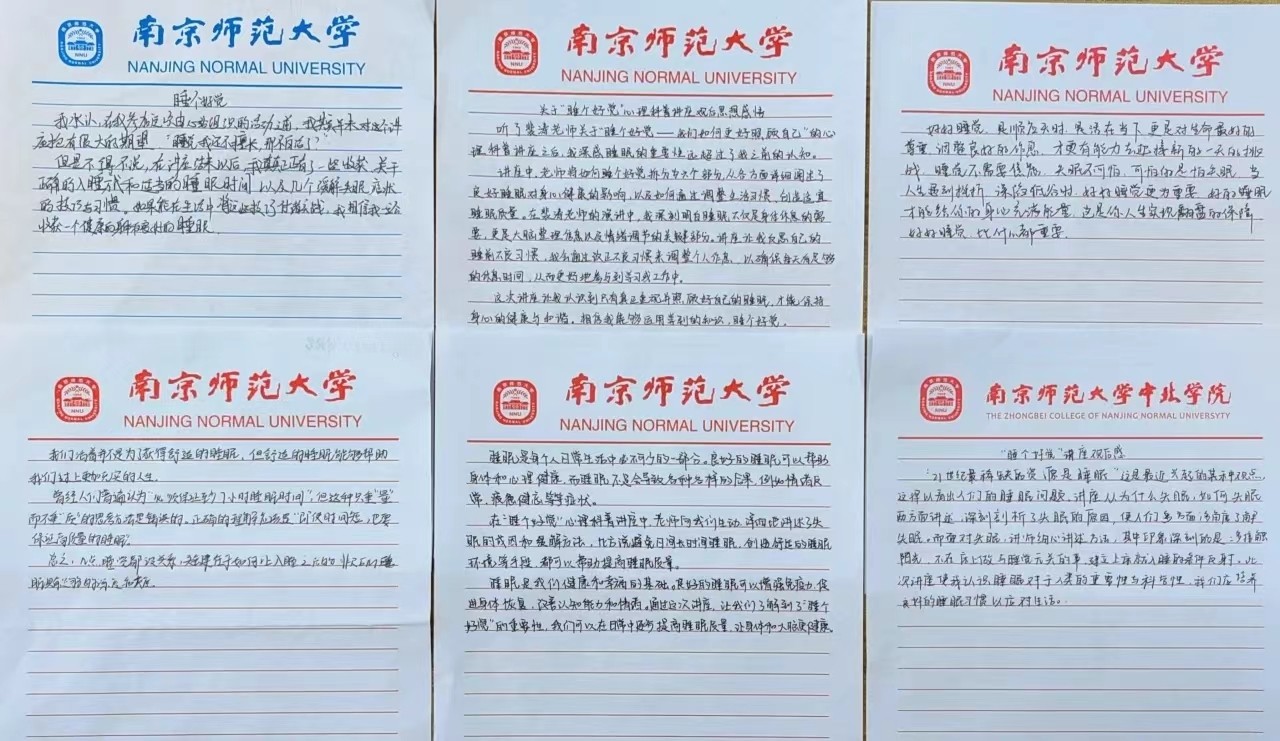 南京师范大学
NANJING NORMAL UNIVERSITY
睡个好觉
我承认,在我参加这次由心站组织的活动之前,我其实并未对这个讲
座抱有很大的期望,“睡觉我还不擅长,那不白活了?”
但是不得不说,在讲座结束以后,我真正有了一些收获,关于
正确的入睡方式和适当的睡眠时间,以及几个缓解失眠症状
的技巧与习惯。
收获一个健康的睡眠。
南京师范大学
NANJING NORMAL UNIVERSITY
关于“睡个好觉”心理科普讲座观后思想感悟
听了裴涛老师关于“睡个好觉——我们如何更好照顾自己”的心
理科普讲座之后,我深感睡眠的重要性远超过了我之前的认知。
讲座中,老师将如何睡个好觉拆分为六个部分,从各方面详细阐述了
良好睡眠对身心健康的影响,以及如何通过调整生活习惯,创造适宜
睡眠质量。在裴涛老师的演讲中,我深刻明白睡眠不仅是身体休息的需
要,更是大脑整理信息以及情绪调节的关键部分。讲座让我反思自己的
睡前不良习惯,我会通过改正不良习惯来调整个人作息,以确保每天有足够
的休息时间,从而更好地参与到学习或工作中。
这次讲座让我认识到只有真正重视并照顾好自己的睡眠,才能保持
身心的健康与和谐。相信我能够运用学到的知识,睡个好觉。
南京师范大学
NANJING NORMAL UNIVERSITY
好好睡觉,是顺应天时,是活在当下,更是对生命最好的
尊重。调整良好的作息,才更有能力去迎接新的一天的挑
战,睡觉不需要焦虑,失眠不可怕,可怕的是怕失眠,当
人生遇到挫折,深陷低谷时,好好睡觉更为重要,好的睡眠
才能给你的身心充满能量,这是你人生实现翻盘的保障
好好睡觉,比什么都重要。
南京师范大学
NANJING NORMAL UNIVERSITY
我们活着并仅是为了获得舒适的睡眠,但舒适的睡眠能够帮助
我们过上更加充足的人生。
曾经人们普遍认为“一次休息至少7小时睡眠时间”,但这种只重“量”
而不重“质”的思考方法是错误的。正确的理解应该是“即使时间短,也要
保证高质量的睡眠。”
总之,几点睡觉都没关系,关键在于如何让入睡之后的
南京师范大学
NANJING NORMAL UNIVERSITY
睡眠是每个人日常生活中必不可少的一部分。良好的睡眠可以帮助
身体和心理健康,而睡眠不足会导致各种各样的后果,例如情绪异
常、疲惫健忘等症状。
在“睡个好觉”心理科普讲座中,老师向我们生动、详细地讲述了失
眠的成因和缓解方法,比方说避免日间长时间睡眠,创造舒适的睡眠
环境等手段,都可以帮助提高睡眠质量。
睡眠是我们健康和幸福的基础。良好的睡眠可以增强免疫力,促
进身体恢复,改善认知能力和情绪。通过这次讲座,让我们了解到了“睡个
好觉”的重要性,我们可以在日常中逐步提高睡眠质量,让身体和大脑更健康。
南京师范大学中北学院
THE ZHONGBEI COLLEGE OF NANJING NORMAL UNIVERSYTY
“睡个好觉”讲座观后感
“21世纪最稀缺的资源是睡眠”这是最近兴起的某种观点,
这样以看出人们的睡眠问题。讲座从为什么失眠,如何失眠
两方面讲述,深刻剖析了失眠的原因,使人们多方面该角度了解
失眠,而面对失眠,讲师细心讲述方法,其中印象深刻的是:多接触
阳光,不在床上做与睡觉无关的事,建立上床就入睡的条件反射。此
次讲座使我认识睡眠对于人类的重要性与科学性,我们应培养
良好的睡眠习惯以应对生活。